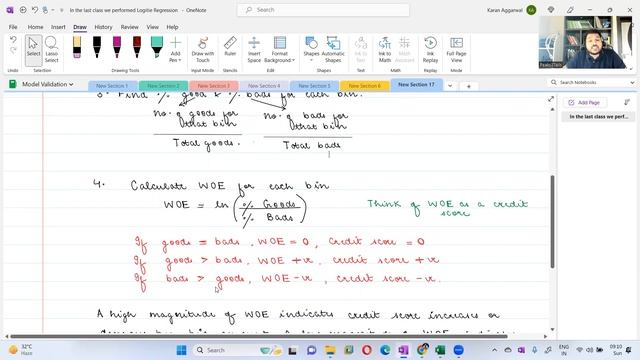 In the last class we performed Logitie Regression - OneNote
Search
Karan Aggarwal
File Home Insert Draw History Review View Help
Select Lasso Select Add Pen Draw with Touch Ruler Insert Space Format Background Ink to Shape Ink to Text Ink to Math Ink Replay Full Page View
Model Validation New Section 1 New Section 2 New Section 3 New Section 4 New Section 5 New Section 6 New Section 7 New Section 17
Search Notebooks
Add Page
In the last class we perform
Find % good & % bads for each bin.
No. of goods for that bin
Total goods.
No. of bads for that bin
Total bads
4. Calculate WOE for each bin
WOE = ln (% Goods / % Bads)
Think of WOE as a credit score
If goods = bads, WOE = 0, credit score = 0
If goods > bads, WOE +ve, credit score +ve
If bads > goods, WOE -ve, credit score -ve.
A high magnitude of WOE indicates credit score increases or
32°C
Haze
Search
ENG
IN
09:10
Sun